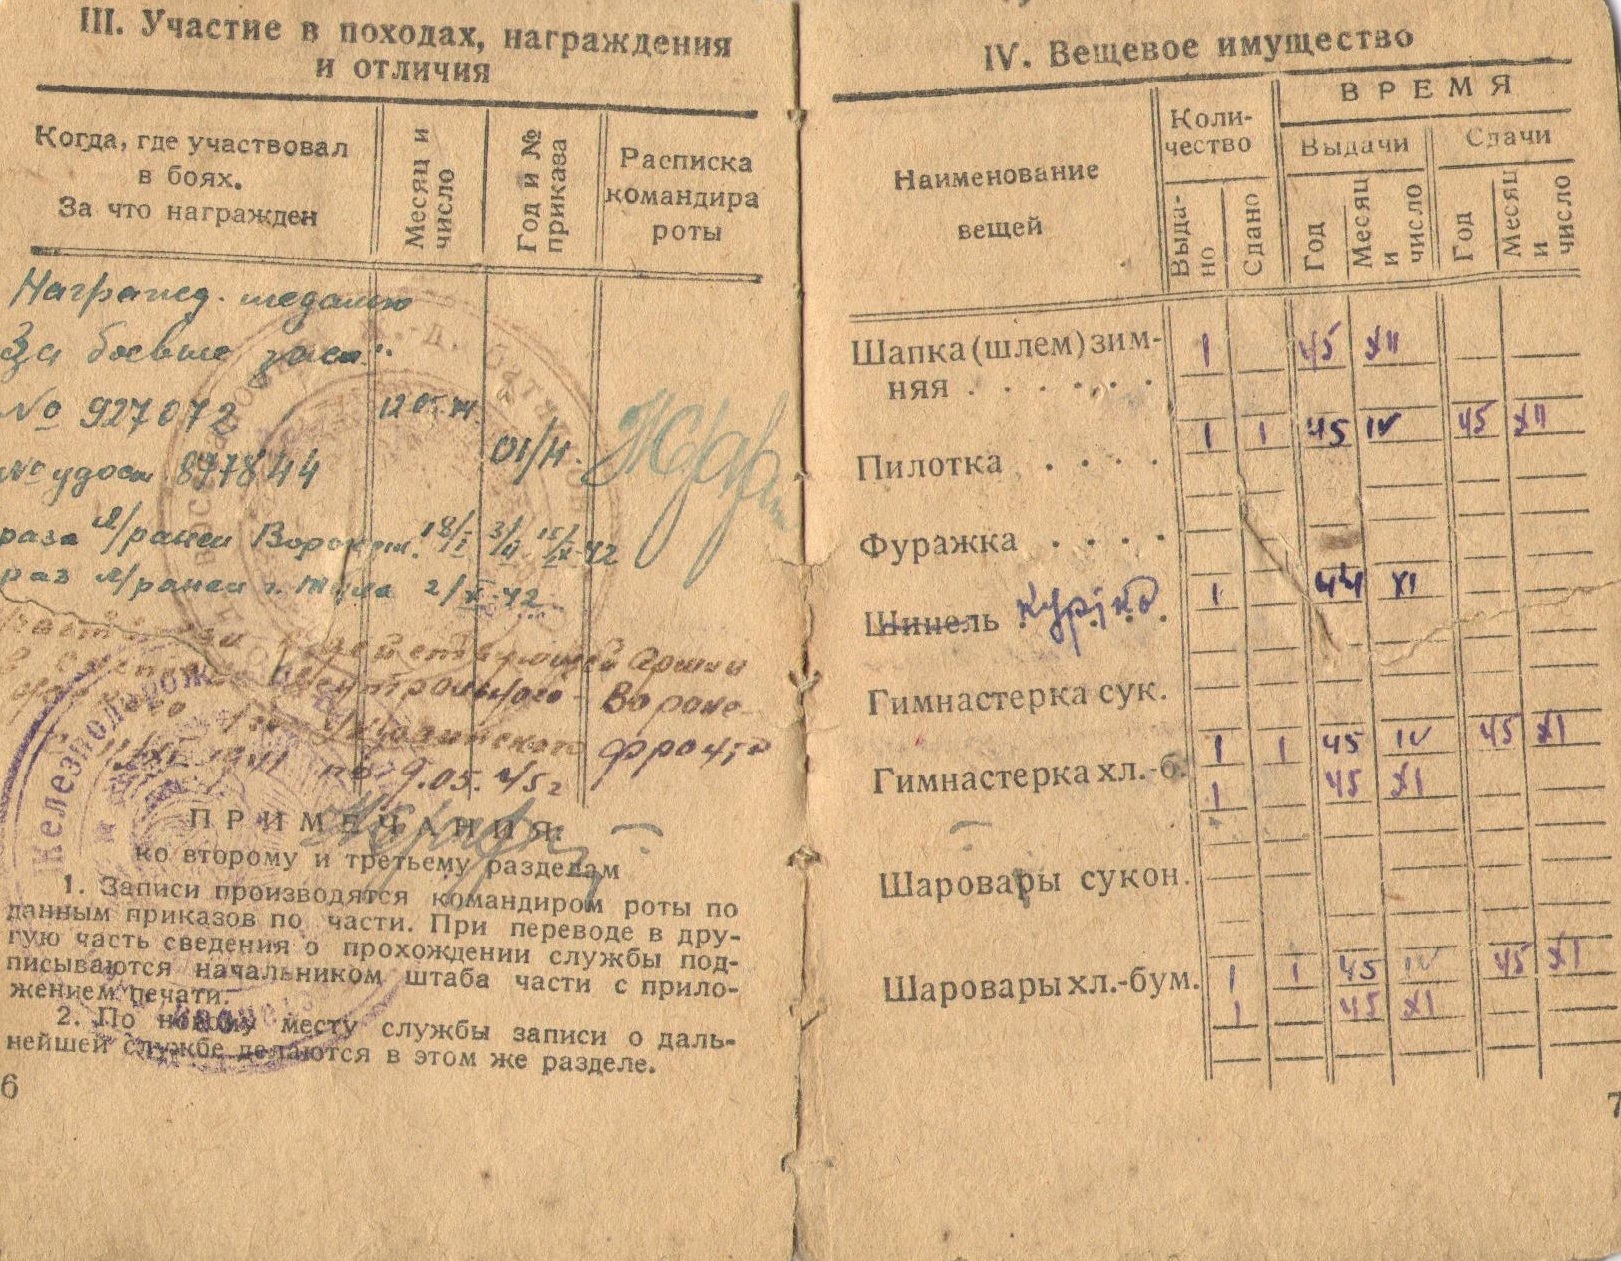 III. Участие в походах, награждения
и отличия
Когда, где участвовал
в боях.
За что награжден
Месяц и
число
Год и №
приказа
Расписка
командира
роты
Награжд. медалью
За боевые
№ 927072
12
01/н.
№ удост. 877844
раза л/ранен 18/I 3/II 42
раз л/ранен г. Тула 2/X-42
действующей Армии
Центрального - Вороне
Украинского фронта
1941 по 9.05.45г
ПРИМЕЧАНИЯ:
ко второму и третьему разделам
1. Записи производятся командиром роты по
данным приказов по части. При переводе в дру-
гую часть сведения о прохождении службы под-
писываются начальником штаба части с прило-
жением печати.
2. По новому месту службы записи о даль-
нейшей службе делаются в этом же разделе.
Железнодорож
6
IV. Вещевое имущество
Наименование
вещей
Коли-
чество
ВРЕМЯ
Выдачи
Сдачи
Выда-
но
Сдано
Год
Месяц
и
число
Год
Месяц
и
число
Шапка (шлем) зим-
няя . . . . . . 1 45 XII
Пилотка . . . . 1 1 45 IV 45 XII
Фуражка . . . .
Шинель куртка 1 44 XI
Гимнастерка сук.
Гимнастерка хл.-б. 1 1 45 IV 45 XI
1 45 XI
Шаровары сукон.
Шаровары хл.-бум. 1 1 45 IV 45 XI
1 45 XI
7